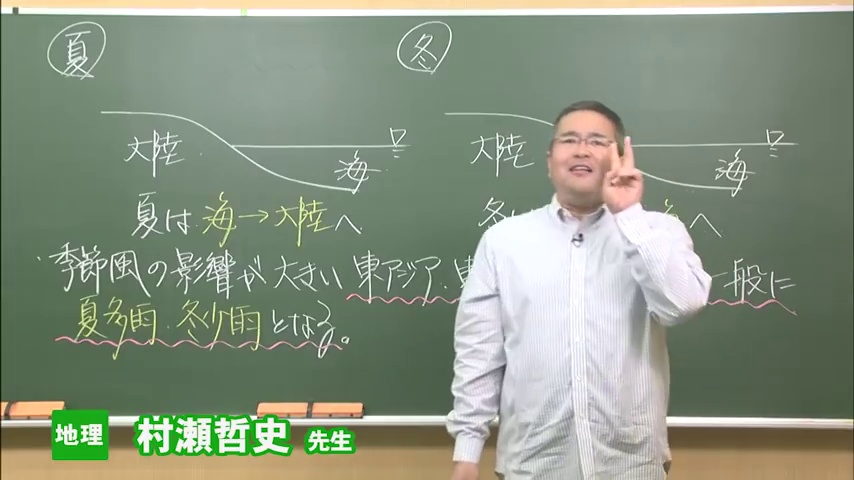 夏
冬
大陸
海
大陸
海
夏は 海→大陸へ
冬 へ
・季節風の影響が大きい 東アジア・東 一般に
夏多雨・冬少雨となる。
地理 村瀬哲史 先生